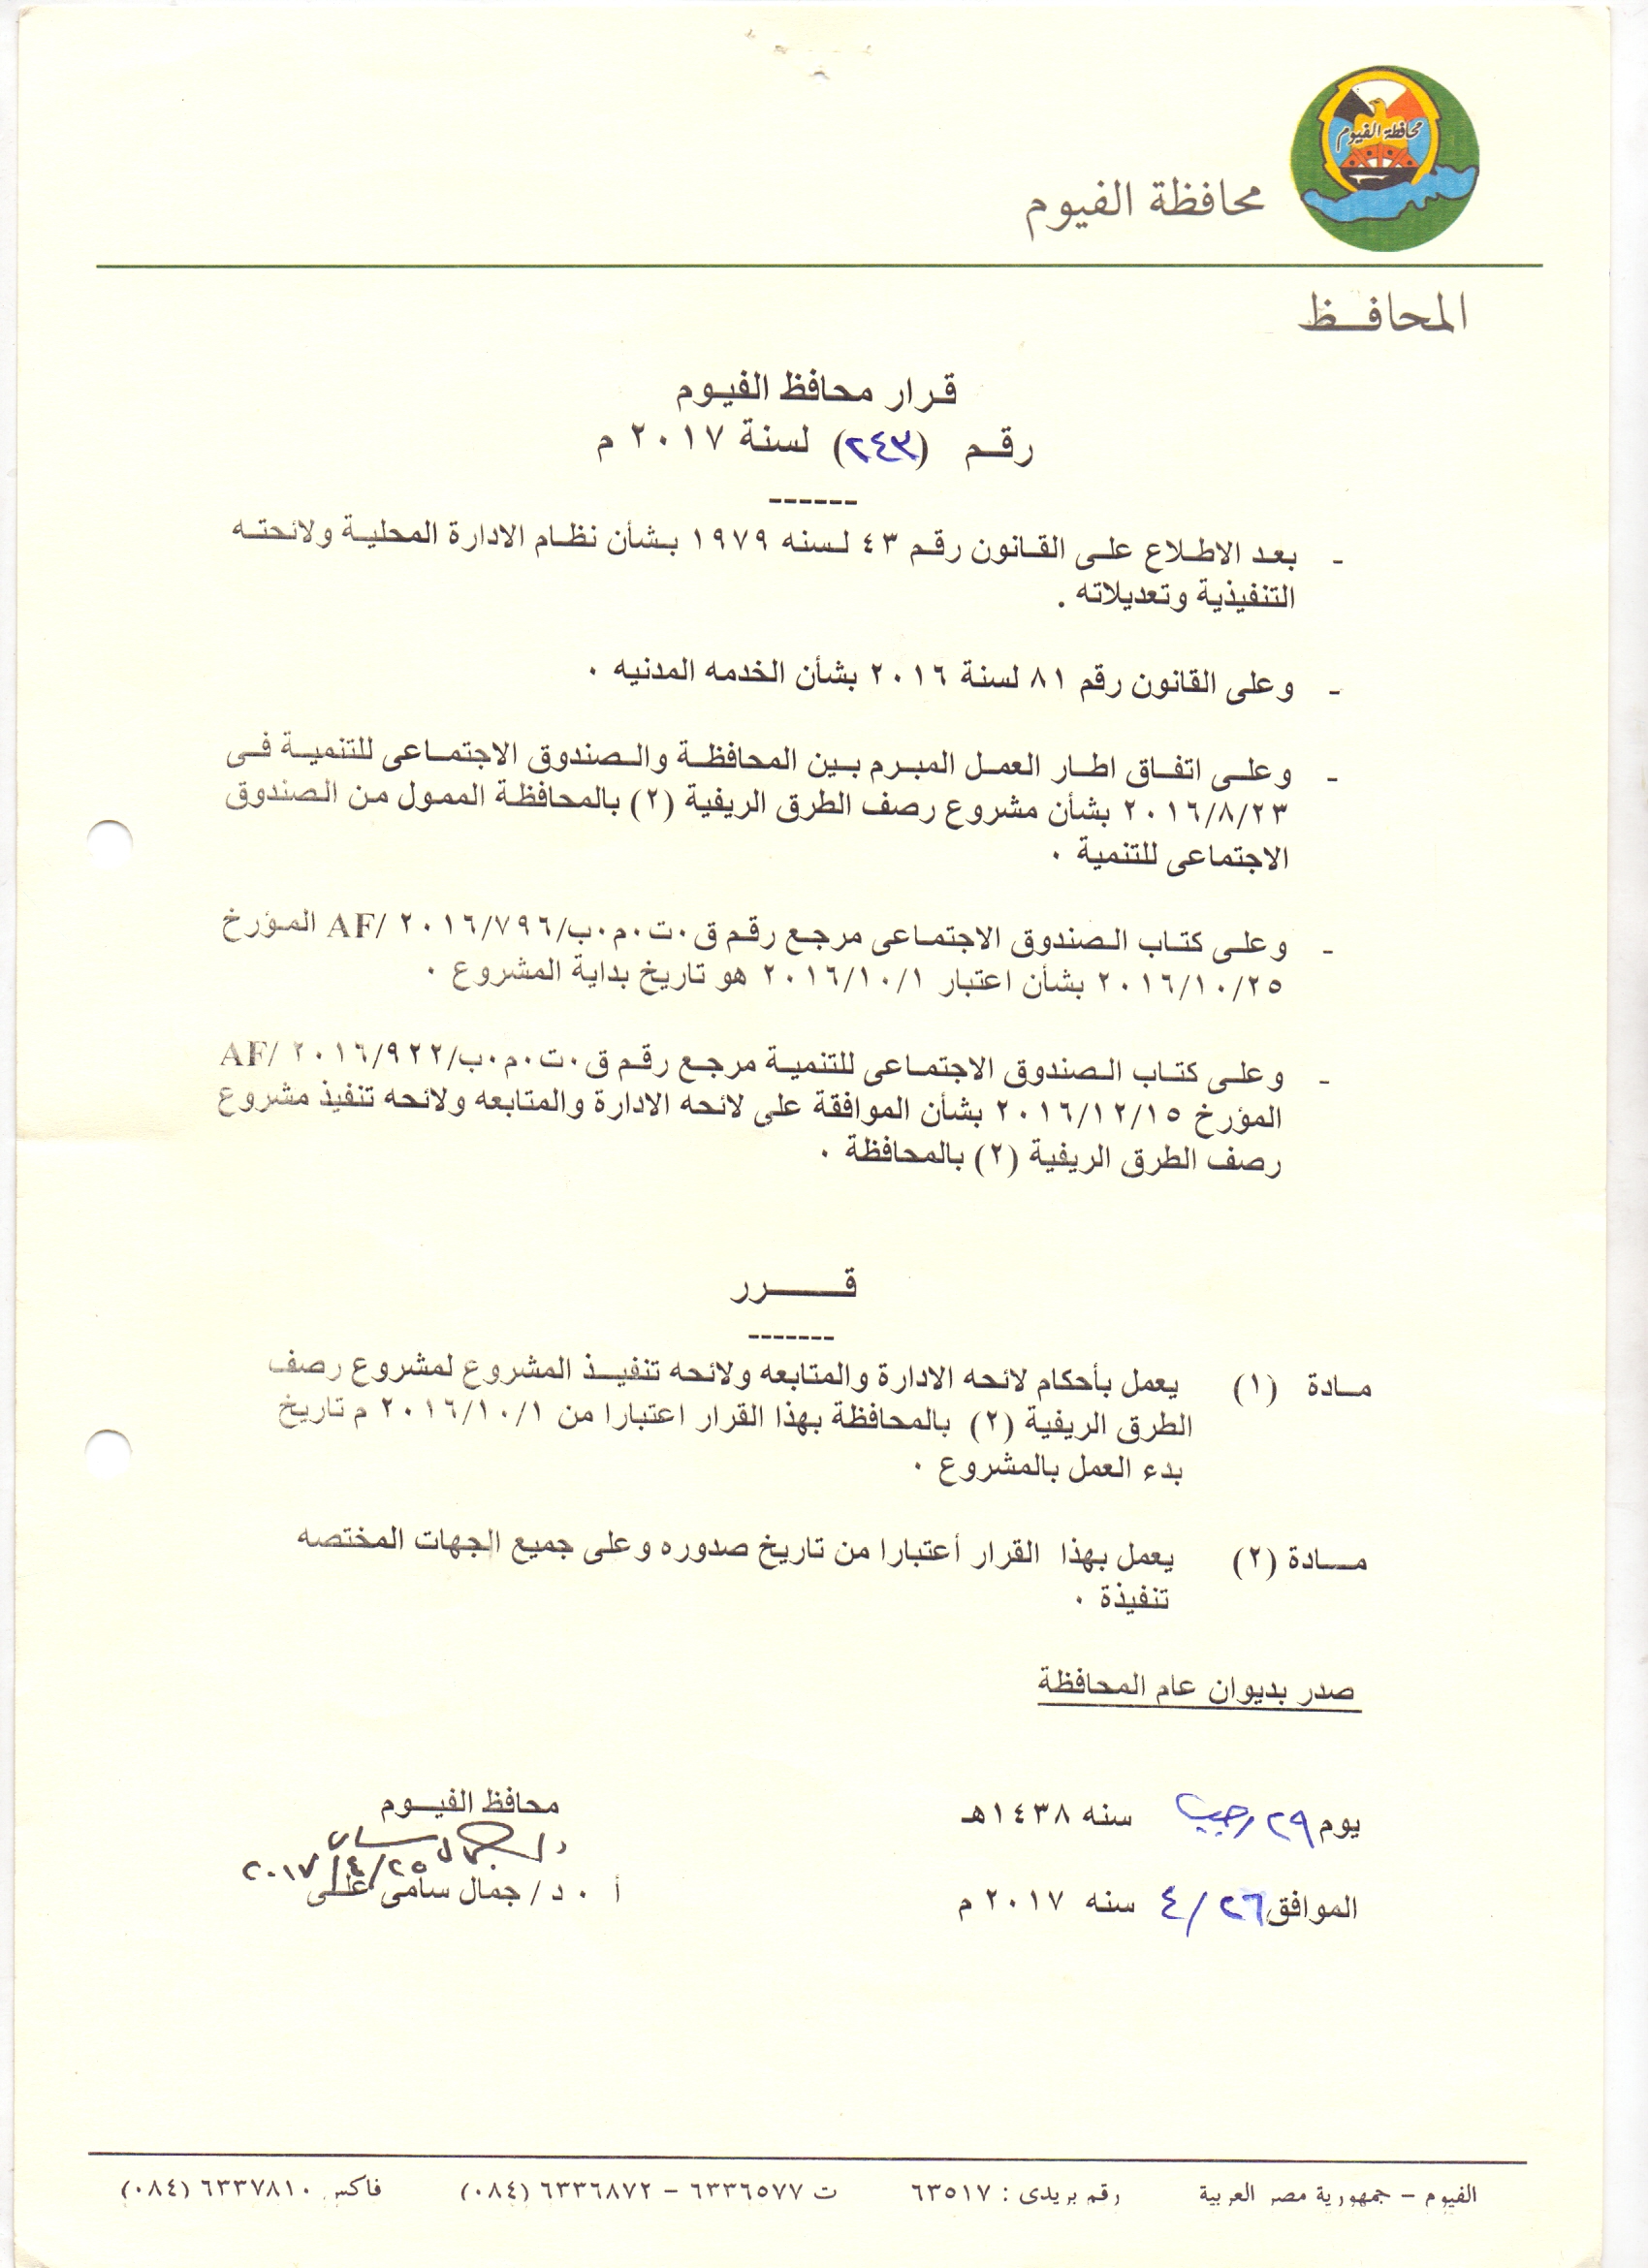 محافظة الفيوم
محافظة الفيوم
المحافـــظ
قـرار محافظ الفيـوم
رقـم (٢٤٣) لسنة ٢٠١٧ م
------
- بعد الاطلاع على القانون رقم ٤٣ لسنه ١٩٧٩ بشأن نظام الادارة المحلية ولائحته
التنفيذية وتعديلاته .
- وعلى القانون رقم ٨١ لسنة ٢٠١٦ بشأن الخدمه المدنيه ٠
- وعلى اتفاق اطار العمل المبرم بين المحافظة والصندوق الاجتماعى للتنمية فى
٢٠١٦/٨/٢٣ بشأن مشروع رصف الطرق الريفية (٢) بالمحافظة الممول من الصندوق
الاجتماعى للتنمية ٠
- وعلى كتاب الصندوق الاجتماعى مرجع رقم ق٠ت٠م٠ب/٢٠١٦/٧٩٦ /AF المؤرخ
٢٠١٦/١٠/٢٥ بشأن اعتبار ٢٠١٦/١٠/١ هو تاريخ بداية المشروع ٠
- وعلى كتاب الصندوق الاجتماعى للتنمية مرجع رقم ق٠ت٠م٠ب/٢٠١٦/٩٢٢ /AF
المؤرخ ٢٠١٦/١٢/١٥ بشأن الموافقة على لائحه الادارة والمتابعه ولائحه تنفيذ مشروع
رصف الطرق الريفية (٢) بالمحافظة ٠
قـــــرر
-------
مـادة (١) يعمل بأحكام لائحه الادارة والمتابعه ولائحه تنفيـذ المشروع لمشروع رصف
الطرق الريفية (٢) بالمحافظة بهذا القرار اعتبارا من ٢٠١٦/١٠/١ م تاريخ
بدء العمل بالمشروع ٠
مـــادة (٢) يعمل بهذا القرار أعتبارا من تاريخ صدوره وعلى جميع الجهات المختصه
تنفيذة ٠
صدر بديوان عام المحافظة
يوم ٢٩ رجب سنه ١٤٣٨هـ
الموافق ٤/٢٦ سنه ٢٠١٧ م
محافظ الفيـــوم
٢٠١٧/٤/٢٥
أ ٠ د/ جمال سامى على
الفيوم – جمهورية مصر العربية رقم بريدى : ٦٣٥١٧ ت ٦٣٣٦٥٧٧ – ٦٣٣٦٨٧٢ (٠٨٤) فاكس ٦٣٣٧٨١٠ (٠٨٤)